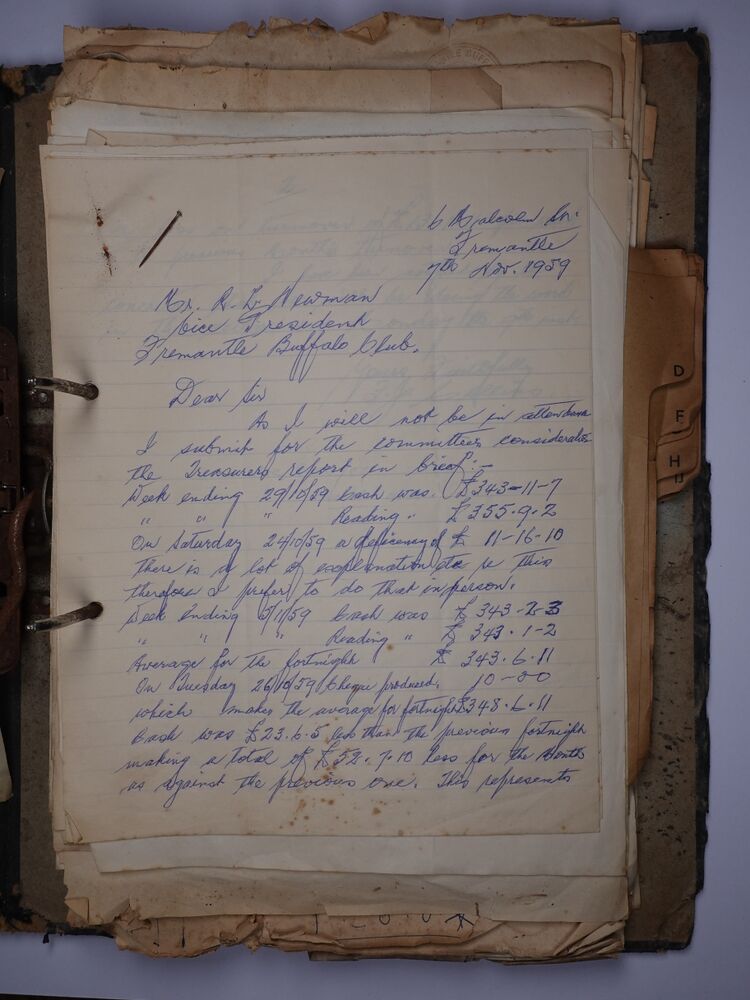 6 Malcolm St.
Fremantle
7th Nov. 1959
Mr. R. L. Newman
Vice President
Fremantle Buffalo Club.
Dear Sir
As I will not be in attendance
I submit for the committees consideration
the Treasurers report in brief:-
Week ending 29/10/59 Cash was. £343-11-7
" " " Reading " £355.9.2
On Saturday 24/10/59 a deficiency of £ 11-16-10
there is a lot of explanation to re this
therefore I prefer to do that in person.
Week Ending 5/11/59 Cash was £ 343-2-3
" " " Reading " £ 343.1-2
Average for the fortnight £ 343.6.11
On Tuesday 26/10/59 Cheque produced. 10-00
which makes the average for fortnight £348.6.11
Cash was £23.6.5 less than the previous fortnight
making a total of £52.7.10 less for the month
as against the previous one. This represents
D
F
H